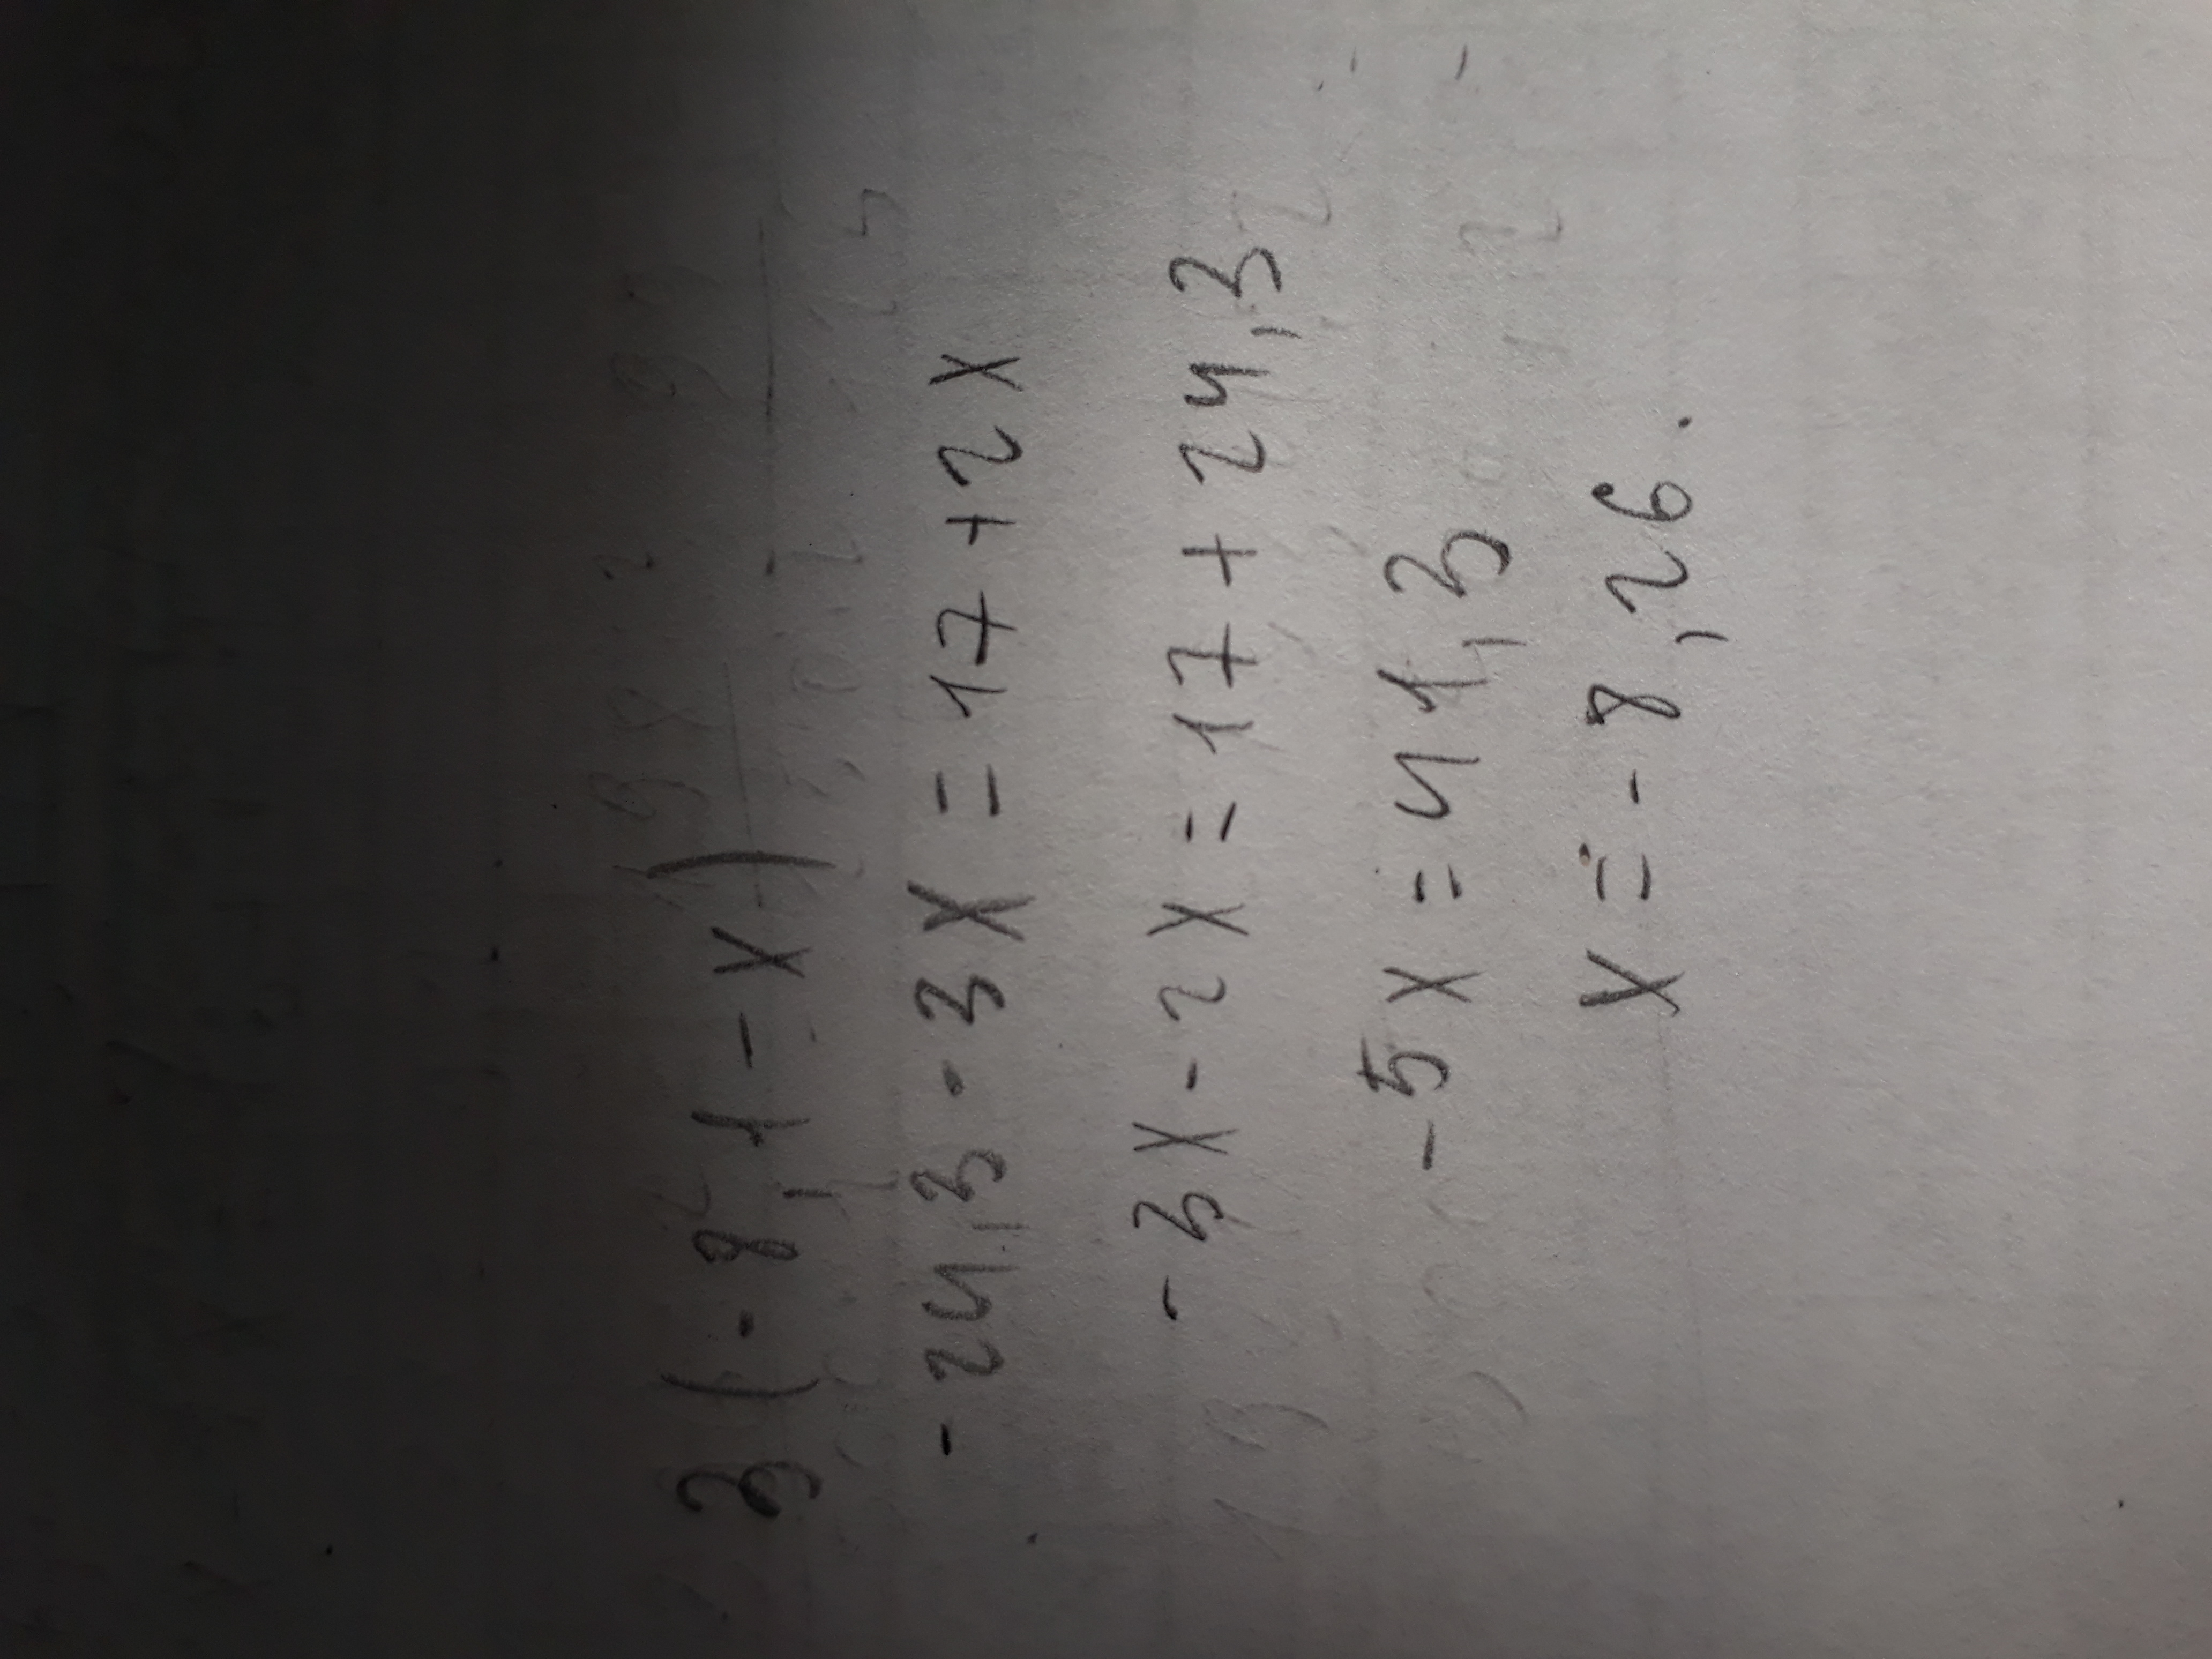 3(-8,1-x)
-24,3-3x=17+2x
-3x-2x=17+24,3
-5x=41,3
x=-8,26.